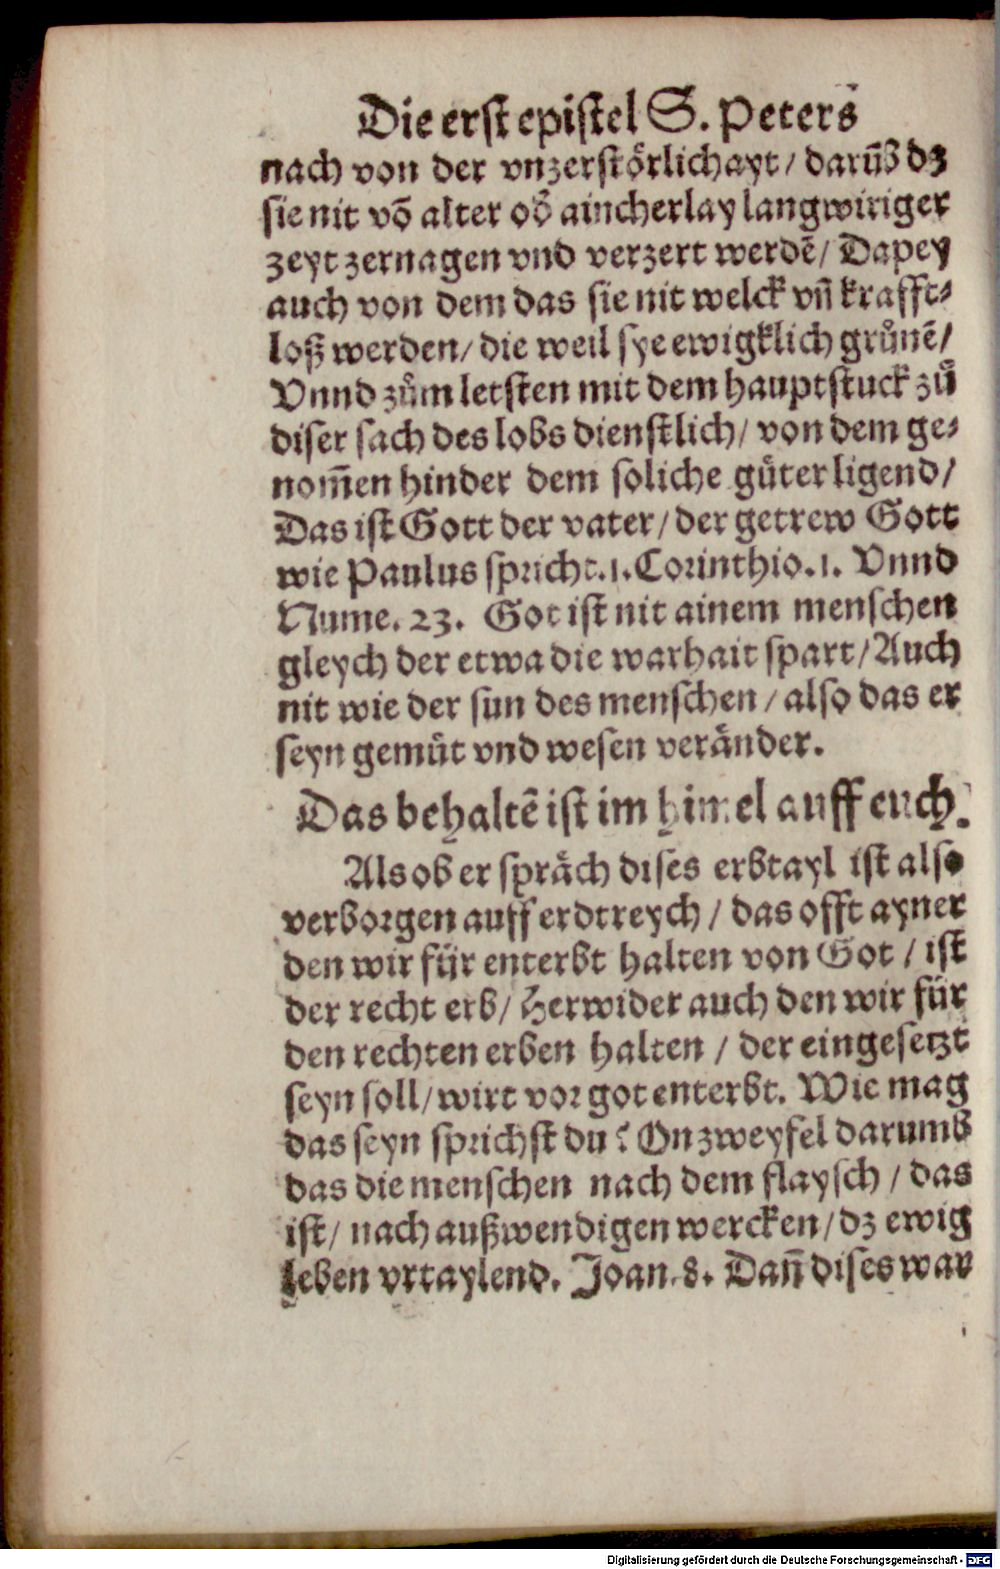 Die erst epistel S. Peters
nach von der vnzerstörlichayt / darūb dz
sie nit võ alter od̕ aincherlay langwiriger
zeyt zernagen vnd verzert werdẽ / Dapey
auch von dem das sie nit welck vñ krafft⸗
loß werden / die weil sye ewigklich grůnẽ /
Vnnd zům letsten mit dem hauptstuck zů
diser sach des lobs dienstlich / von dem ge⸗
nom̃en hinder dem soliche güter ligend /
Das ist Gott der vater / der getrew Gott
wie Paulus spricht .1. Corinthio .1. Vnnd
Nume. 23. Got ist nit ainem menschen
gleych der etwa die warhait spart / Auch
nit wie der sun des menschen / also das er
seyn gemüt vnd wesen veränder.
Das behaltẽ ist im himel auff euch.
Als ob er spräch dises erbtayl ist also
verborgen auff erdtreych / das offt ayner
den wir für enterbt halten von Got / ist
der recht erb / Herwider auch den wir für
den rechten erben halten / der eingesetzt
seyn soll / wirt vor got enterbt. Wie mag
das seyn sprichst du? On zweyfel darumb
das die menschen nach dem flaysch / das
ist / nach außwendigen wercken / dz ewig
leben vrtaylend. Joan. 8. Dañ dises war
Digitalisierung gefördert durch die Deutsche Forschungsgemeinschaft - DFG